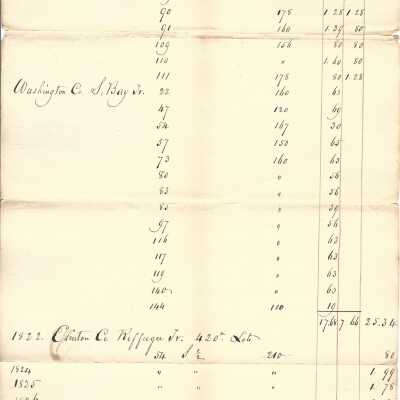 90 178 1.28 1.28
91 160 1.39 80
109 156 80 80
110 " 1.60 80
111 178 80 1.28
Washington Co S. Bay Tr. 22 160 63
47 120 69
54 167 30
57 150 65
73 160 63
80 " 56
83 " 56
85 " 39
97 " 56
116 " 63
117 " 63
119 " 63
140 " 63
144 100 19
17.68 7 66 25.34
1822. Clinton Co Reffugee Tr. 420 a. Lots
54 S ½ 210 80
1824 " " " 1.99
1825 " " " 1.78